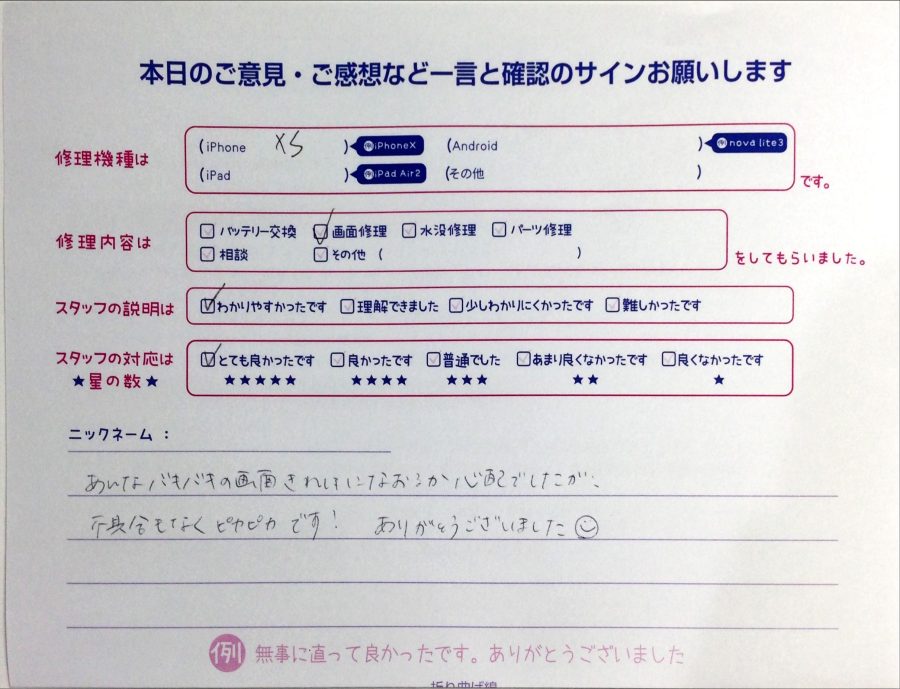 本日のご意見・ご感想など一言と確認のサインお願いします
修理機種は (iPhone XS ) 例iPhoneX (Android ) 例nova lite3
(iPad ) 例iPad Air2 (その他 ) です。
修理内容は バッテリー交換 画面修理 水没修理 パーツ修理
相談 その他 ( ) をしてもらいました。
スタッフの説明は わかりやすかったです 理解できました 少しわかりにくかったです 難しかったです
スタッフの対応は とても良かったです 良かったです 普通でした あまり良くなかったです 良くなかったです
★星の数★ ★★★★★ ★★★★ ★★★ ★★ ★
ニックネーム :
あんなバキバキの画面きれいになおるか心配でしたが、
不具合もなくピカピカです! ありがとうございました☺
例 無事に直って良かったです。ありがとうございました
折り曲げ線